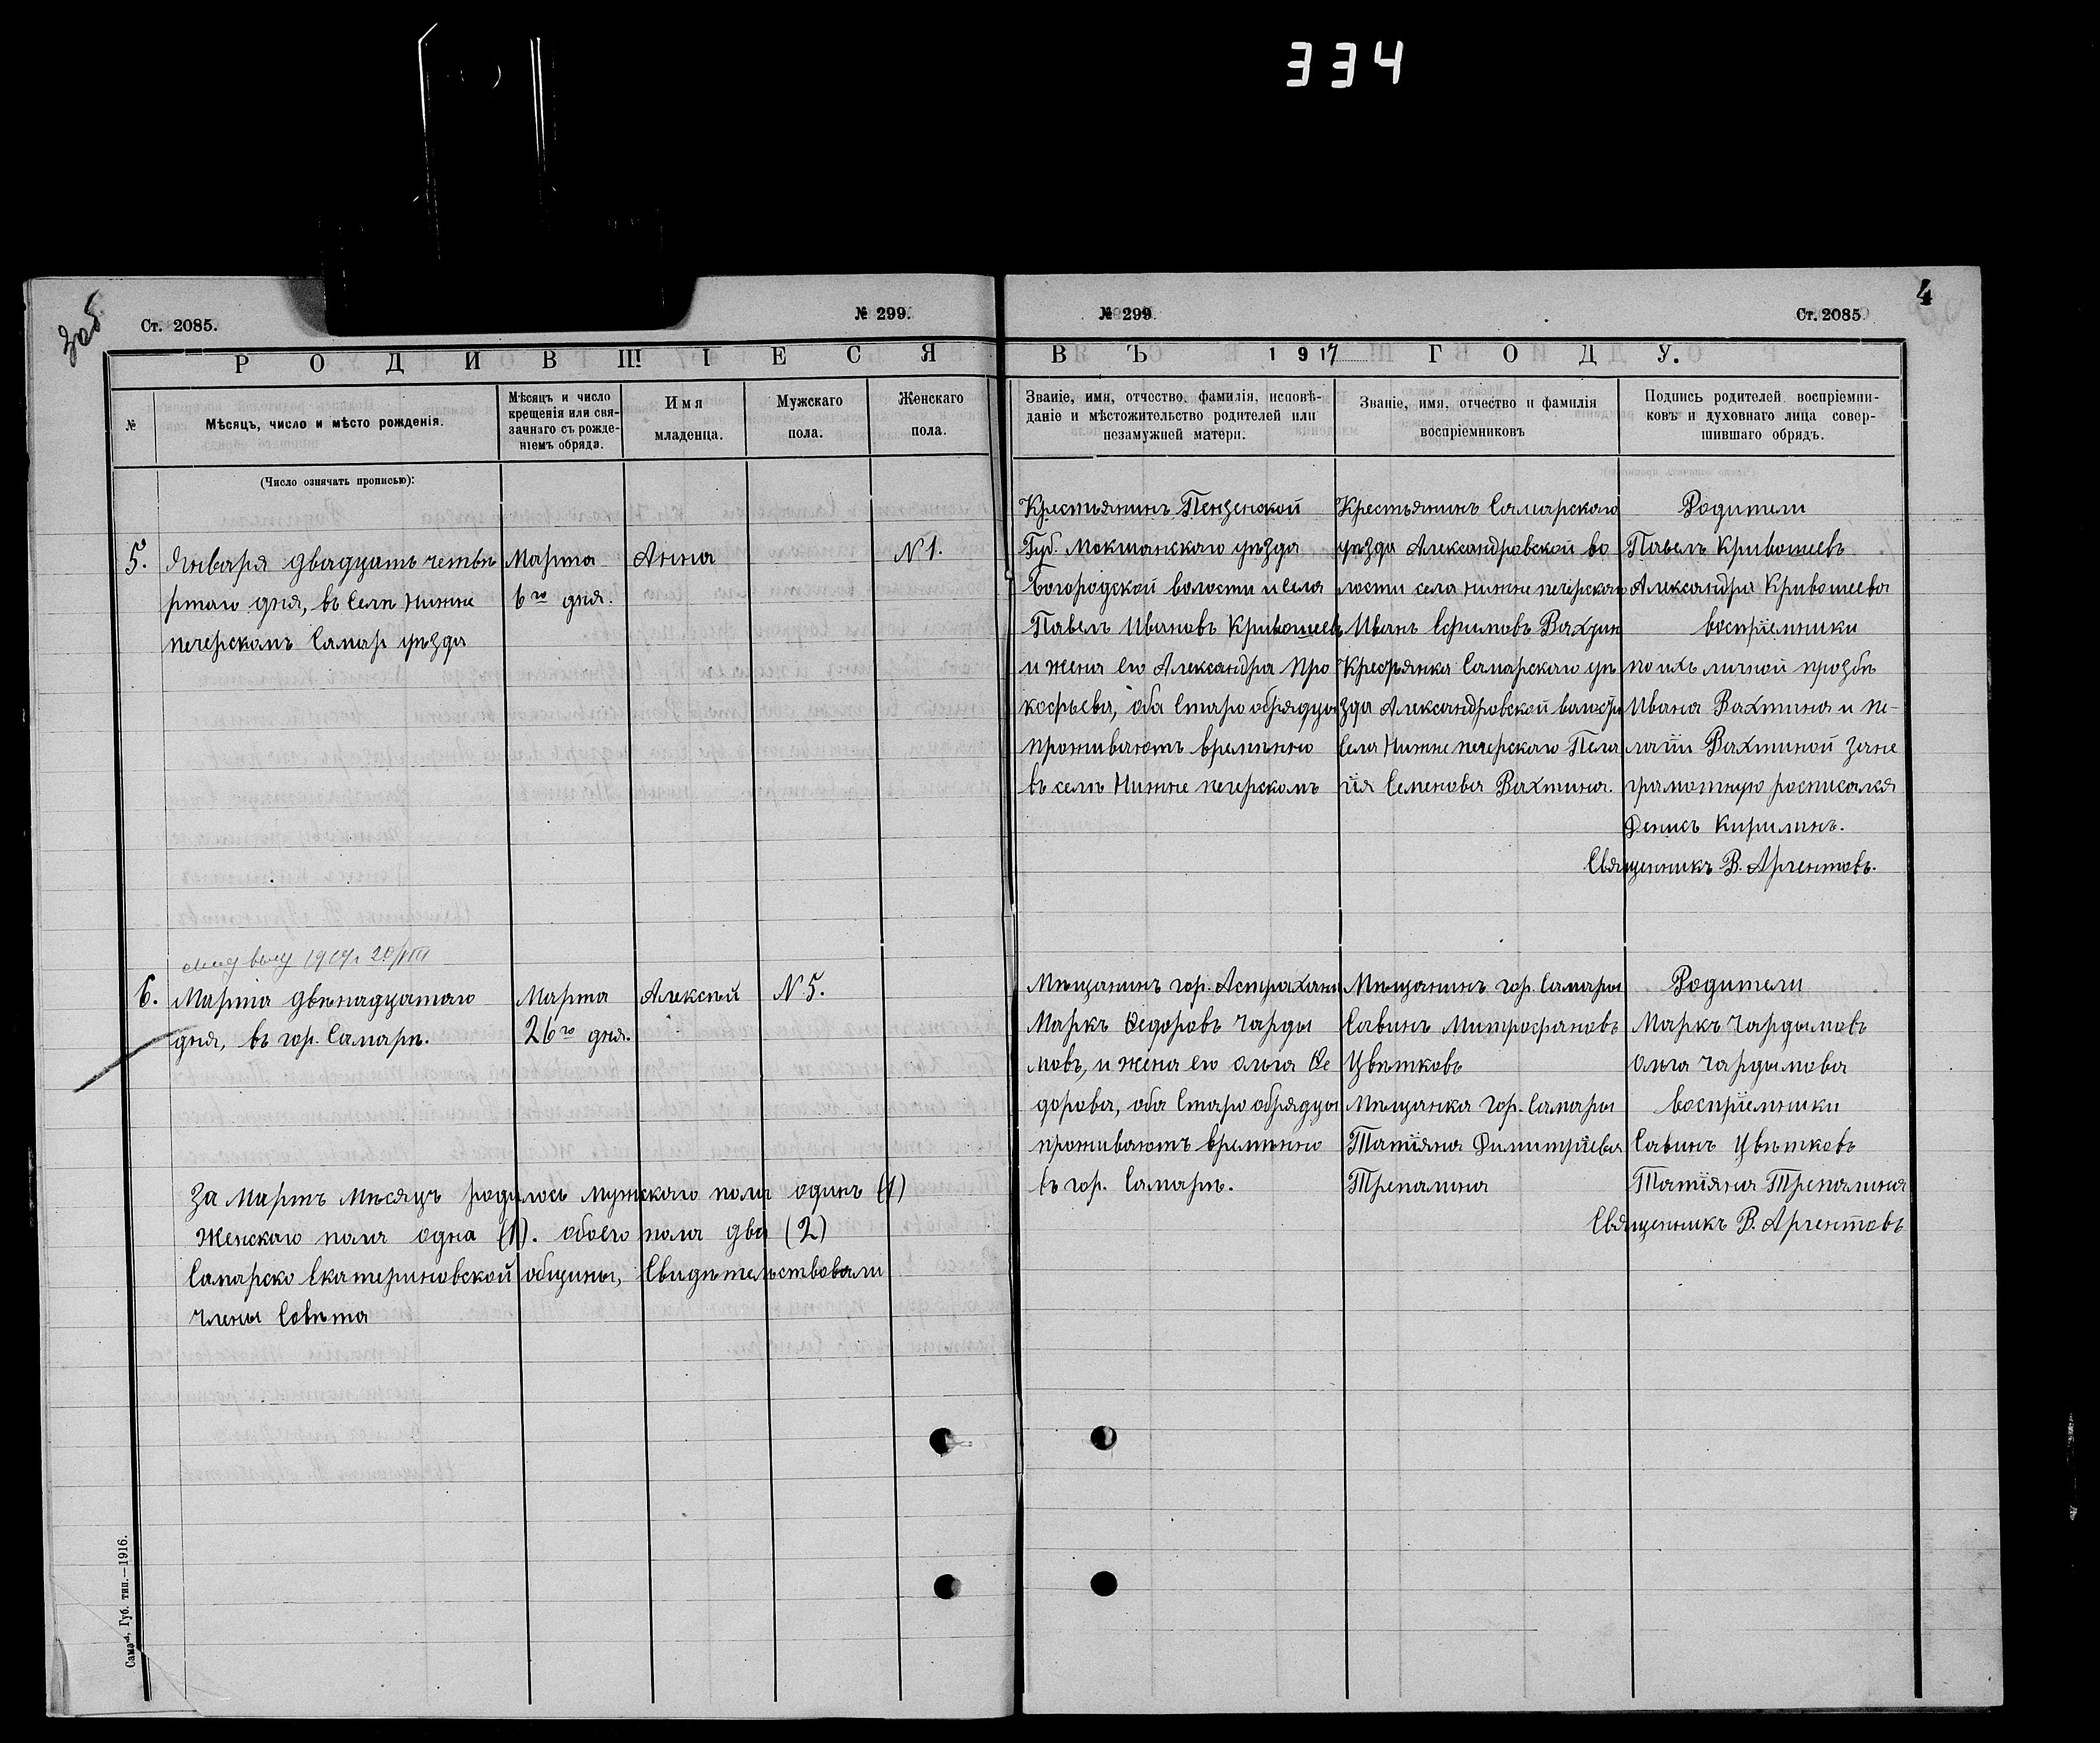 334
4
Ст. 2085.
№ 299.
№ 299.
Ст. 2085
РОДИВШІЕСЯ
ВЪ 1917 ГОДУ.
№
Мѣсяцъ, число и мѣсто рожденія.
Мѣсяцъ и число
крещенія или свя-
заннаго съ рожде-
ніемъ обряда.
Имя
младенца.
Мужскаго
пола.
Женскаго
пола.
Званіе, имя, отчество, фамилія, исповѣ-
даніе и мѣстожительство родителей или
незамужней матери.
Званіе, имя, отчество и фамилія
воспріемниковъ
Подпись родителей воспріемни-
ковъ и духовнаго лица совер-
шившаго обрядъ.
(Число означать прописью):
5.
Января двадцать четвѣ
ртаго дня, въ Селѣ Нижне
печерскомъ Самар уѣзда
Марта
6го дня.
Анна
№ 1.
Крестьянинъ Пензенской
Губ. Мокшанскаго уѣзда
Богородской волости и села
Павелъ Ивановъ Кривошеевъ
и жена его Александра Про
кофьева, оба Старообрядцы
проживаютъ временно
въ селѣ Нижне печерскомъ
Крестьянинъ Самарскаго
уѣзда Александровской во
лости села Нижне печерскаго
Иванъ Ефимовъ Вахтин
Крестьянка Самарскаго уѣ
зда Александровской волости
Села Нижне печерскаго Пела
гія Семенова Вахтина.
Родители
Павелъ Кривошеевъ
Александра Кривошеева
воспріемники
по ихъ личной прозбѣ
Ивана Вахтина и Пе-
лагіи Вахтиной зане
грамотную росписался
Денисъ Кирилинъ.
Священникъ В. Аргентовъ.
1919г 20/VIII
6.
Марта двѣнадцатаго
дня, въ гор. Самарѣ.
Марта
26го дня.
Алексѣй
№ 5.
Мѣщанинъ гор. Астрахани
Маркъ Ѳедоровъ Чарды
мовъ, и жена его Ольга Ѳе
дорова, оба Старообрядцы
проживаютъ временно
въ гор. Самарѣ.
Мѣщанинъ гор. Самары
Савинъ Митрофановъ
Цвѣтковъ
Мѣщанка гор. Самары
Татіяна Димитріева
Трепалина
Родители
Маркъ Чардымовъ
Ольга Чардымова
воспріемники
Савинъ Цвѣтковъ
Татіяна Трепалина
Священникъ В. Аргентовъ
За Мартъ Мѣсяцъ родилось мужскаго пола одинъ (1)
Женскаго пола одна (1). обоего пола два (2)
Самарско Екатериновской общины, Свидѣтельствовали
Члены Совѣта
Самара, Губ. тип.—1916.